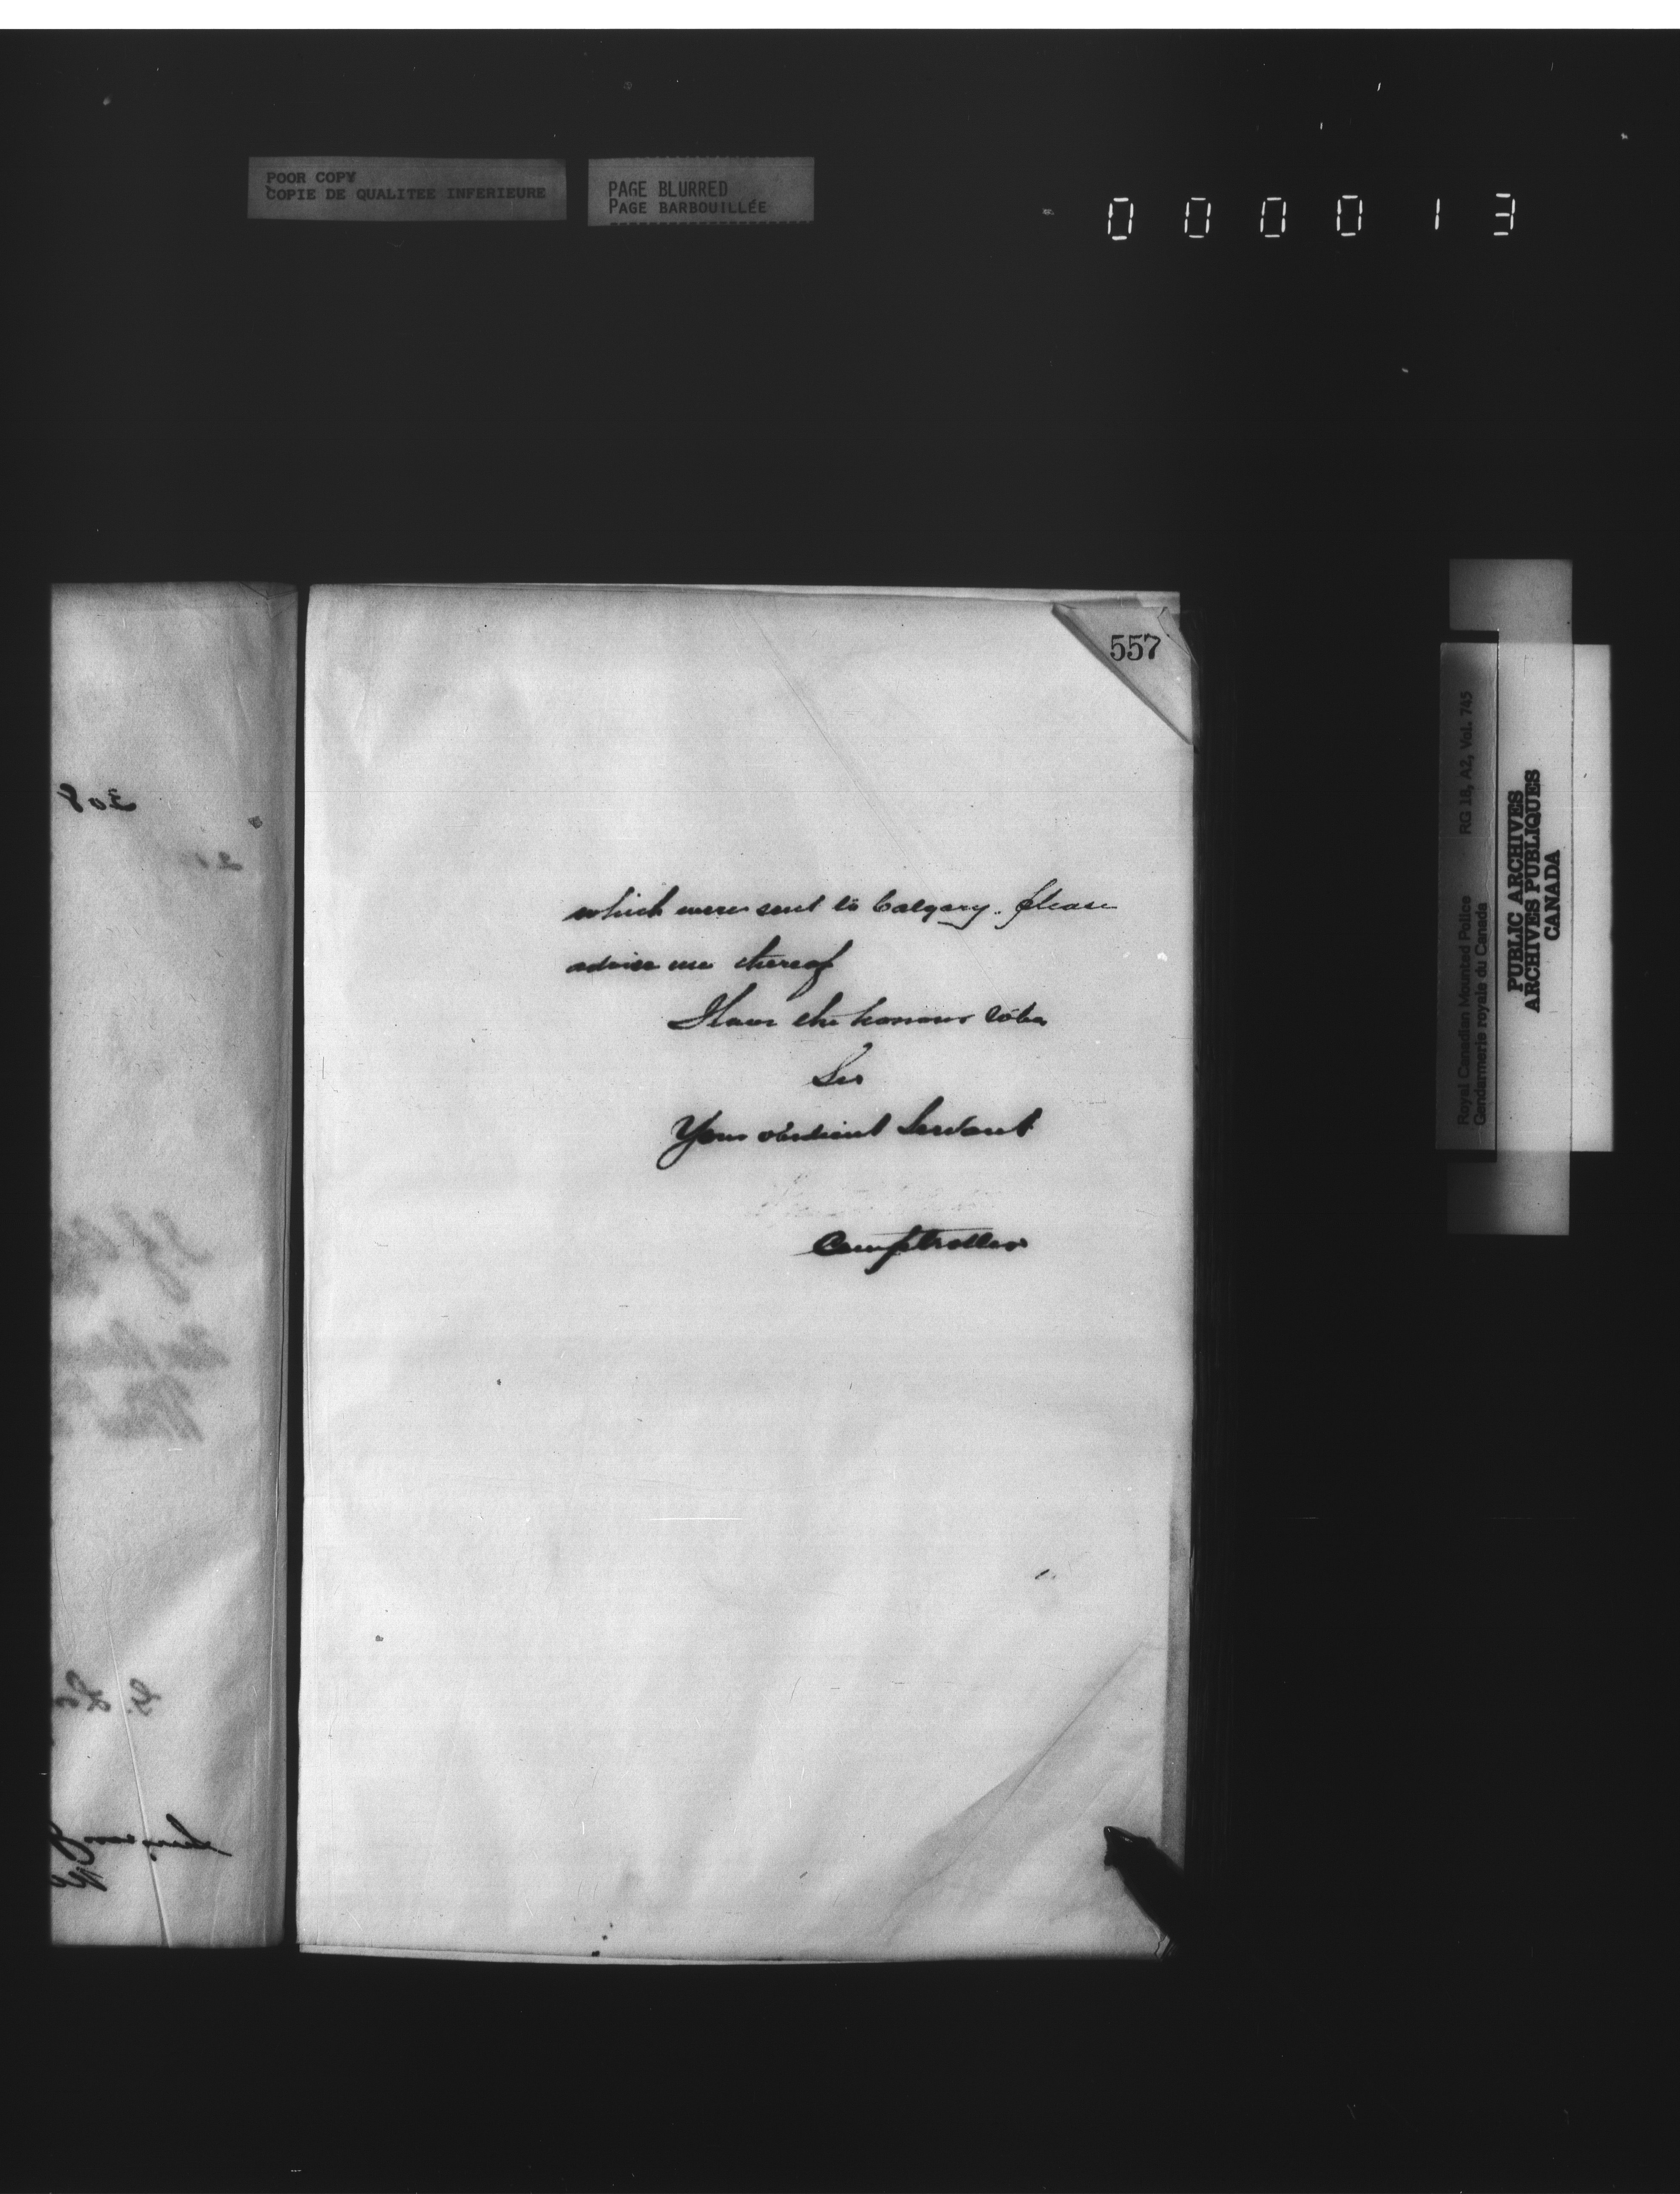 POOR COPY
COPIE DE QUALITEE INFERIEURE
PAGE BLURRED
PAGE BARBOUILLÉE
000013
557
308
which were sent to Calgary. Please
advise me thereof
I have the honour to be
Sir
Your obedient Servant
Comptroller
Royal Canadian Mounted Police RG 18, A2, Vol. 745
Gendarmerie royale du Canada
PUBLIC ARCHIVES
ARCHIVES PUBLIQUES
CANADA